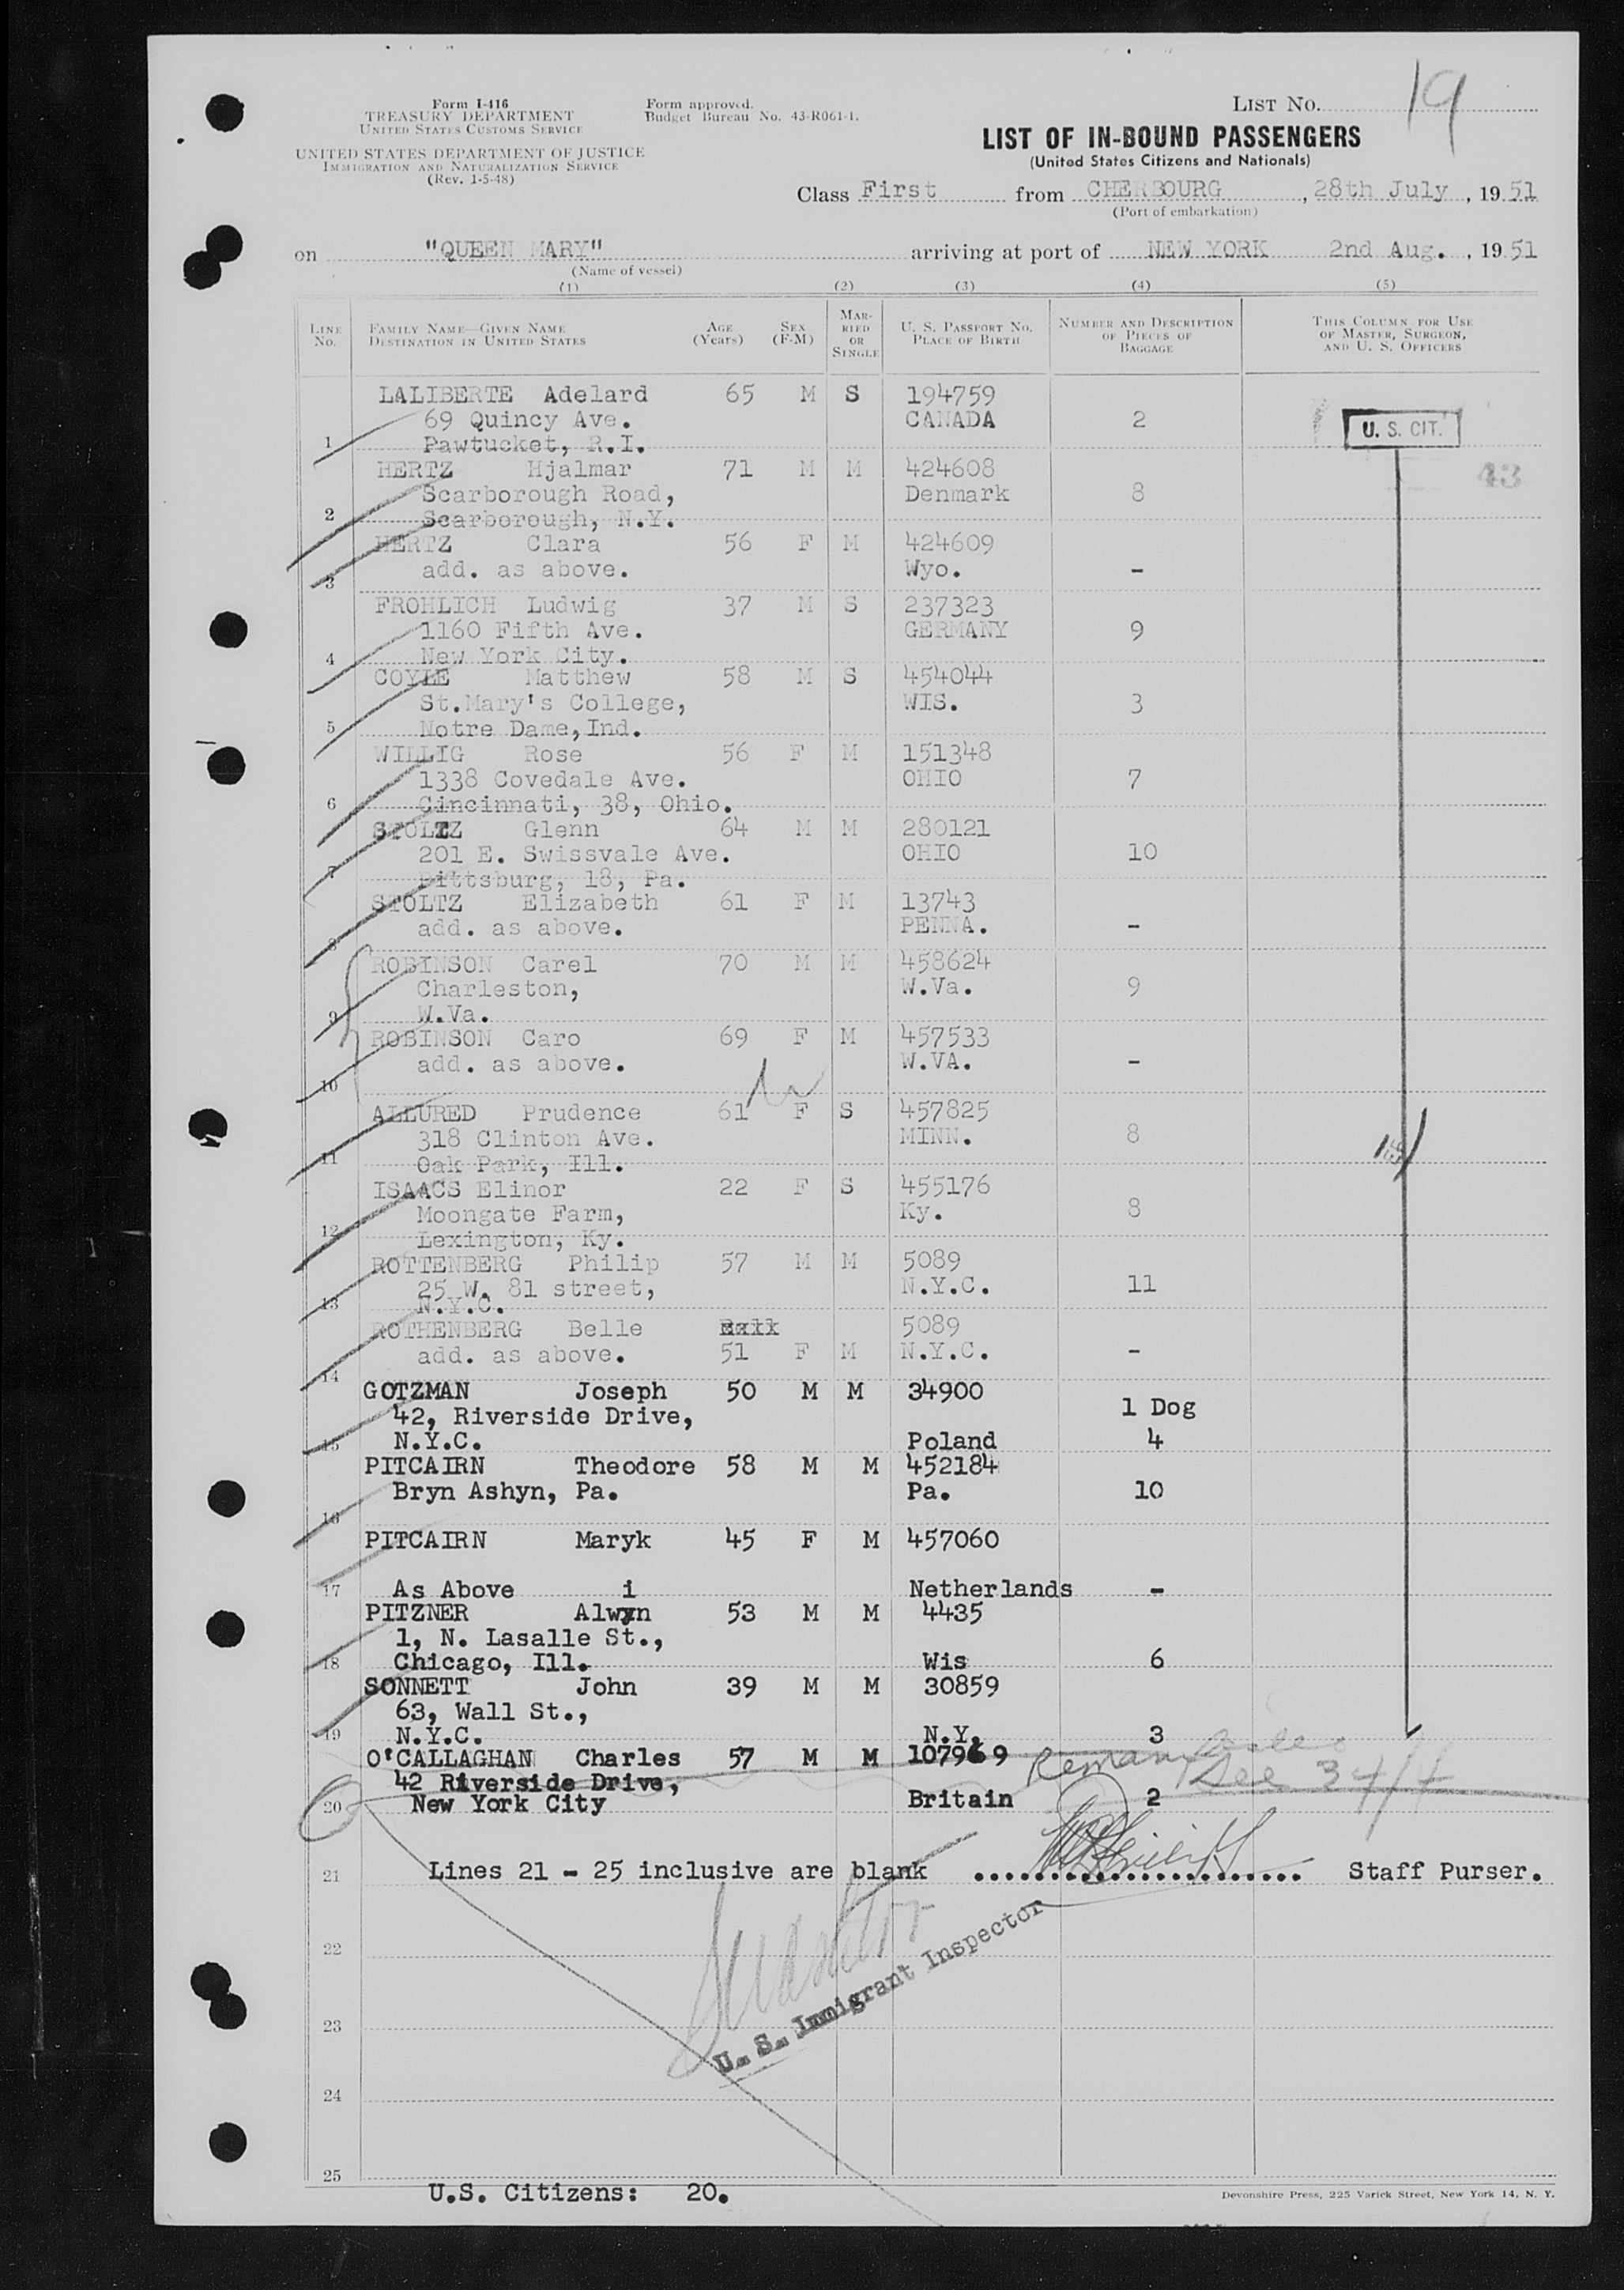 Form I-416
TREASURY DEPARTMENT
UNITED STATES CUSTOMS SERVICE
UNITED STATES DEPARTMENT OF JUSTICE
IMMIGRATION AND NATURALIZATION SERVICE
(Rev. 1-5-48)
Form approved.
Budget Bureau No. 43-R061-1.
LIST NO. 19
LIST OF IN-BOUND PASSENGERS
(United States Citizens and Nationals)
Class First from CHERBOURG, 28th July, 1951
(Port of embarkation)
on "QUEEN MARY" arriving at port of NEW YORK 2nd Aug., 1951
(Name of vessel)
(1) (2) (3) (4) (5)
LINE NO. FAMILY NAME—GIVEN NAME DESTINATION IN UNITED STATES AGE (Years) SEX (F-M) MARRIED OR SINGLE U. S. PASSPORT NO. PLACE OF BIRTH NUMBER AND DESCRIPTION OF PIECES OF BAGGAGE THIS COLUMN FOR USE OF MASTER, SURGEON, AND U. S. OFFICERS
LALIBERTE Adelard 65 M S 194759
69 Quincy Ave. CANADA 2 U. S. CIT.
1 Pawtucket, R.I.
HERTZ Hjalmar 71 M M 424608 43
Scarborough Road, Denmark 8
2 Scarborough, N.Y.
HERTZ Clara 56 F M 424609
add. as above. Wyo. -
3
FROHLICH Ludwig 37 M S 237323
1160 Fifth Ave. GERMANY 9
4 New York City.
COYLE Matthew 58 M S 454044
St.Mary's College, WIS. 3
5 Notre Dame,Ind.
WILLIG Rose 56 F M 151348
1338 Covedale Ave. OHIO 7
6 Cincinnati, 38, Ohio.
STOLTZ Glenn 64 M M 280121
201 E. Swissvale Ave. OHIO 10
7 Pittsburg, 18, Pa.
STOLTZ Elizabeth 61 F M 13743
add. as above. PENNA. -
8
ROBINSON Carel 70 M M 458624
Charleston, W.Va. 9
9 W.Va.
ROBINSON Caro 69 F M 457533
add. as above. W.VA. -
10
ALLURED Prudence 61 F S 457825
318 Clinton Ave. MINN. 8
11 Oak Park, Ill.
ISAACS Elinor 22 F S 455176
Moongate Farm, Ky. 8
12 Lexington, Ky.
ROTTENBERG Philip 57 M M 5089
25 W. 81 street, N.Y.C. 11
13 N.Y.C.
ROTHENBERG Belle 5089
add. as above. 51 F M N.Y.C. -
14
GOTZMAN Joseph 50 M M 34900
42, Riverside Drive, 1 Dog
15 N.Y.C. Poland 4
PITCAIRN Theodore 58 M M 452184
Bryn Ashyn, Pa. Pa. 10
16
PITCAIRN Maryk 45 F M 457060
17 As Above i Netherlands -
PITZNER Alwyn 53 M M 4435
1, N. Lasalle St.,
18 Chicago, Ill. Wis 6
SONNETT John 39 M M 30859
63, Wall St.,
19 N.Y.C. N.Y. 3
O'CALLAGHAN Charles 57 M M 107969
42 Riverside Drive, See 34/4
20 New York City Britain 2
21 Lines 21 - 25 inclusive are blank ...................... Staff Purser.
22
U. S. Immigrant Inspector
23
24
25
U.S. Citizens: 20.
Devonshire Press, 225 Varick Street, New York 14, N. Y.